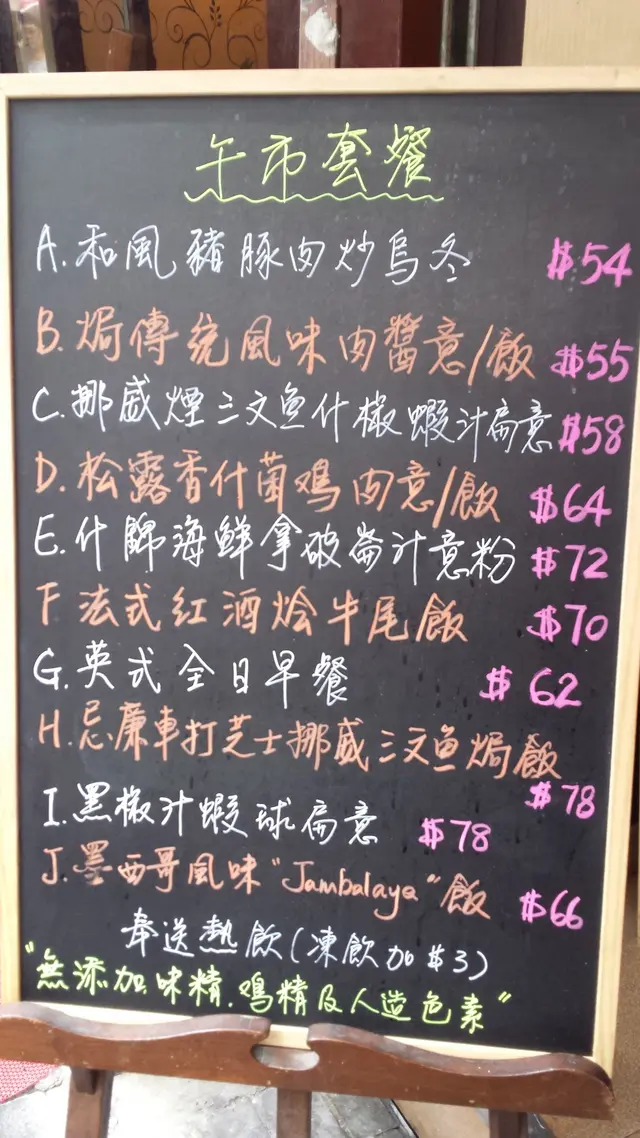 午市套餐
A. 和風豬豚肉炒烏冬 $54
B. 焗傳統風味肉醬意/飯 $55
C. 挪威煙三文魚什椒蝦汁扁意 $58
D. 松露香什菌鸡肉意/飯 $64
E. 什錦海鮮拿破崙汁意粉 $72
F 法式红酒烩牛尾飯 $70
G. 英式全日早餐 $62
H. 忌廉車打芝士挪威三文魚焗飯
$78
I. 黑椒汁蝦球扁意 $78
J. 墨西哥風味“Jambalaya”飯 $66
奉送熱飲(凍飲加$3)
“無添加味精.鸡精及人造色素”